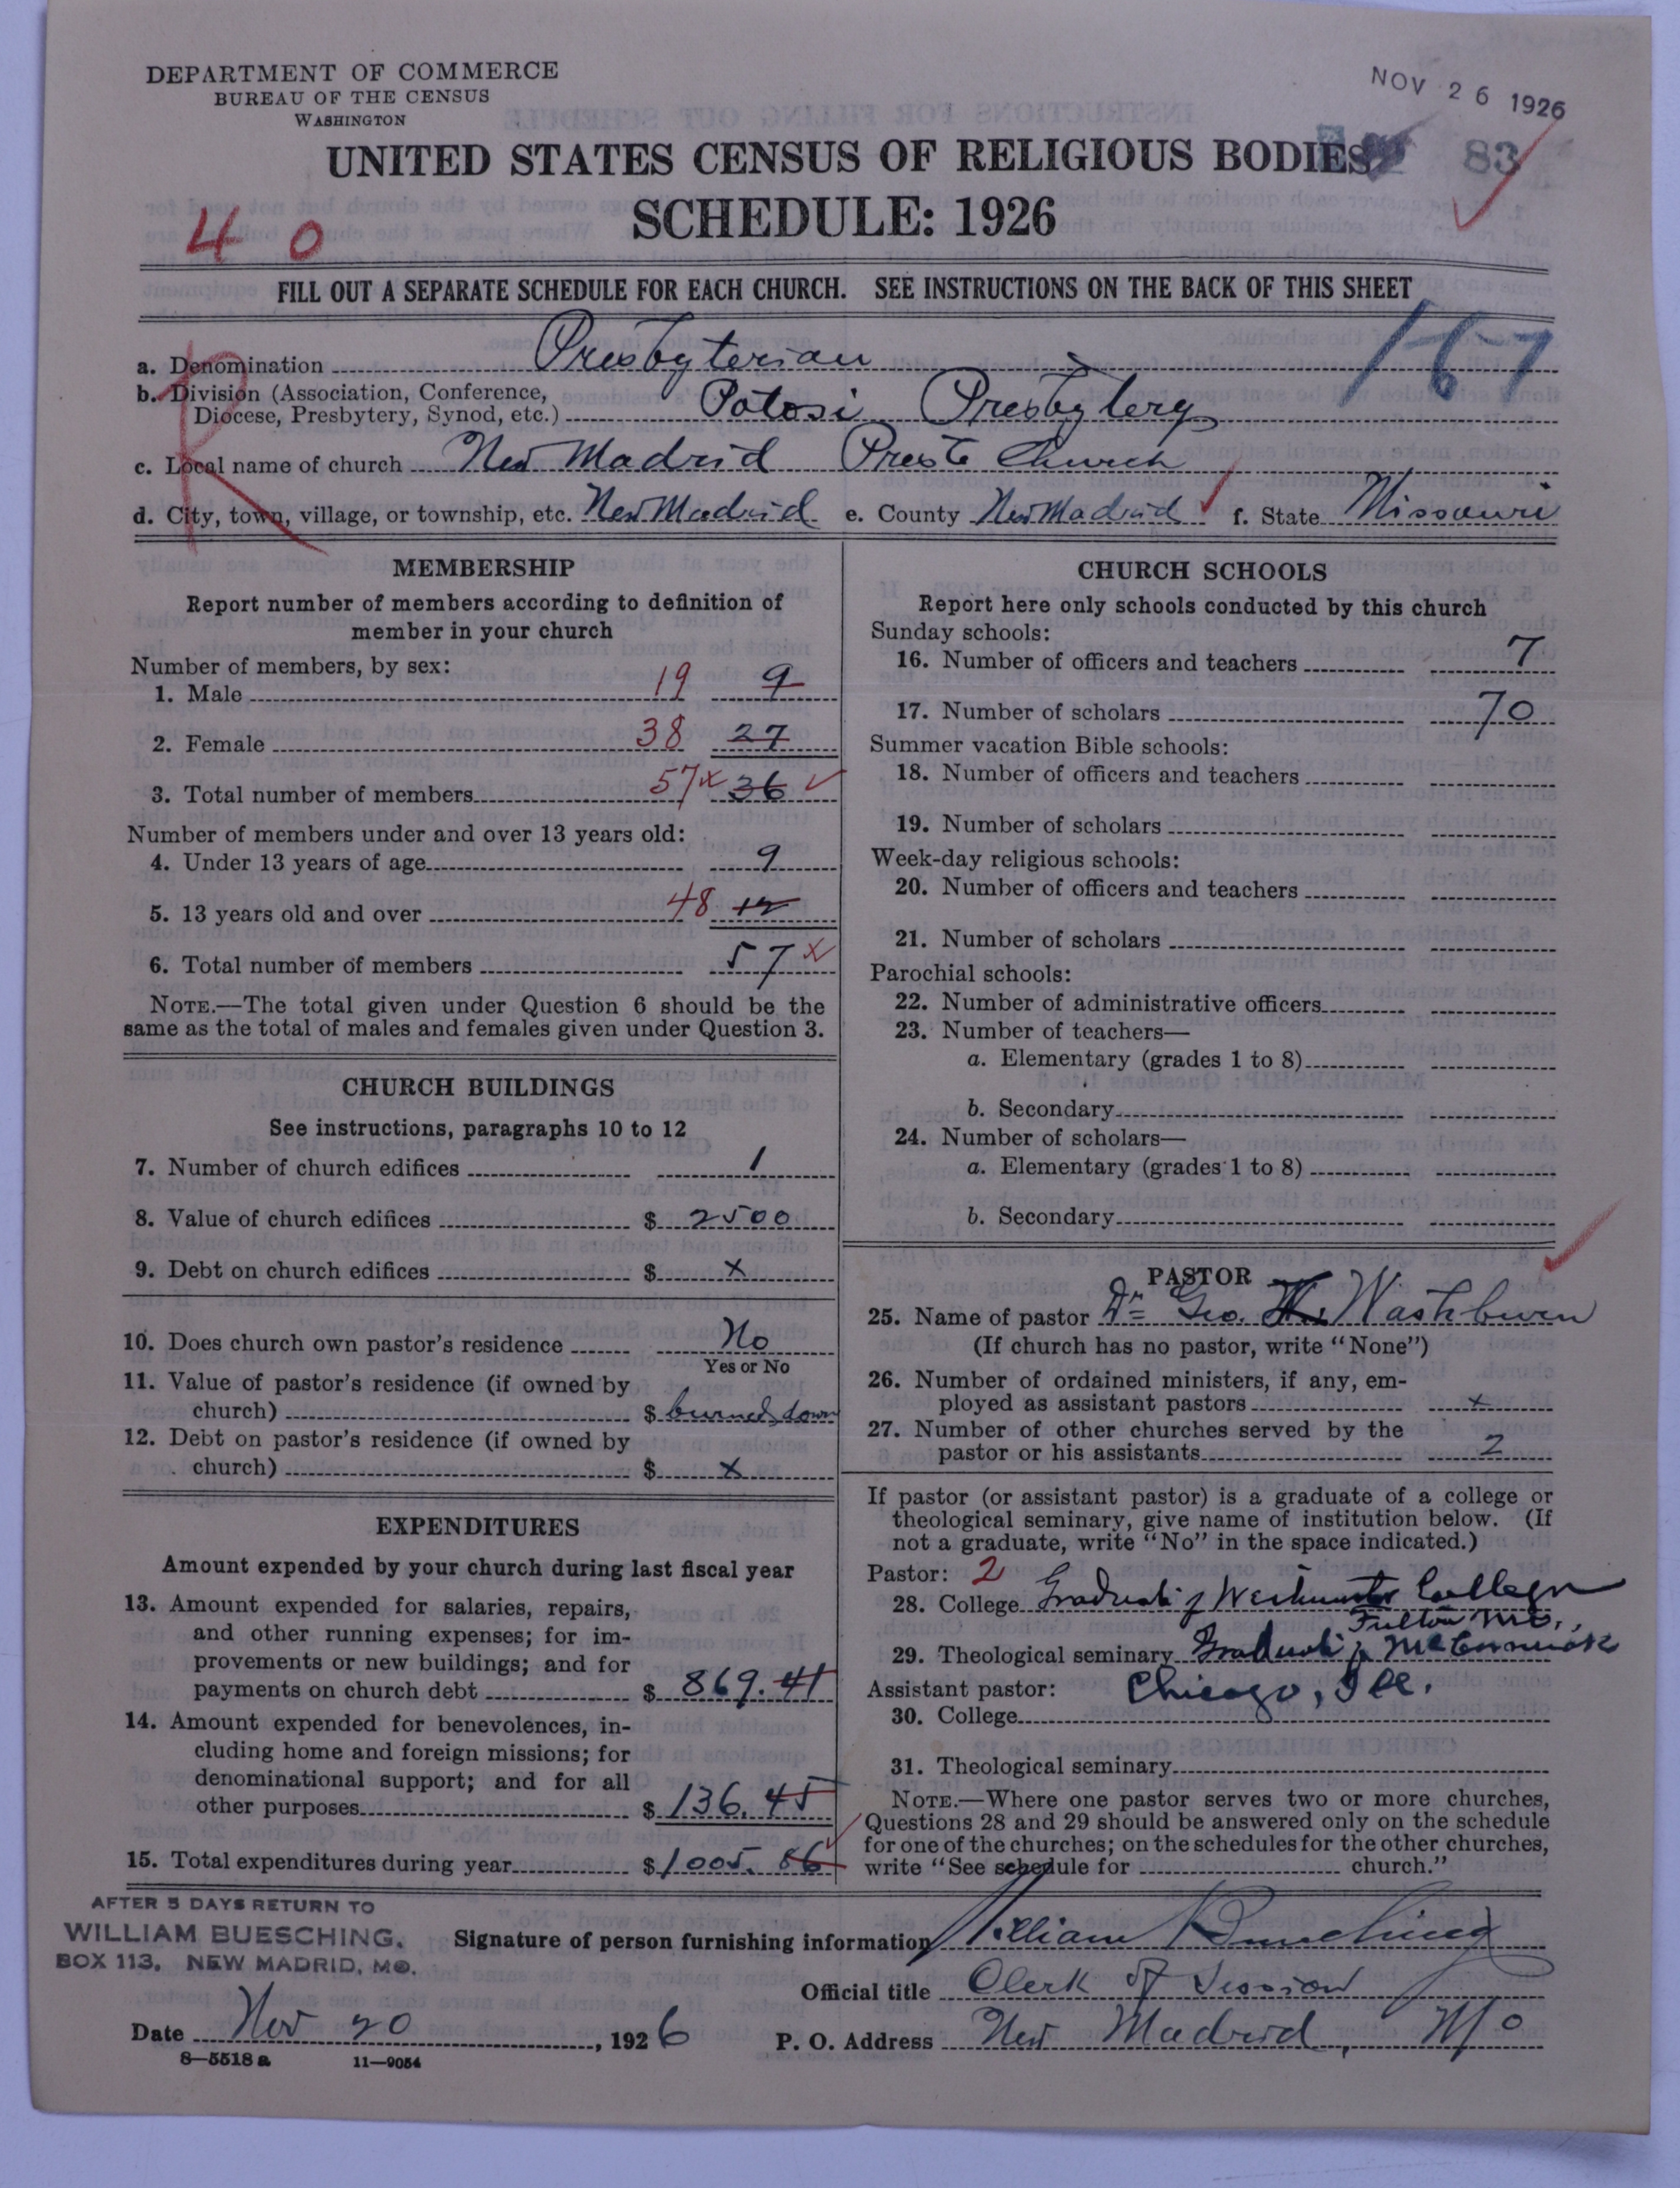 DEPARTMENT OF COMMERCE
BUREAU OF THE CENSUS
WASHINGTON
NOV 26 1926
UNITED STATES CENSUS OF RELIGIOUS BODIES
83
SCHEDULE: 1926
4 0
FILL OUT A SEPARATE SCHEDULE FOR EACH CHURCH. SEE INSTRUCTIONS ON THE BACK OF THIS SHEET
167
R
a. Denomination Presbyterian
b. Division (Association, Conference,
Diocese, Presbytery, Synod, etc.) Potosi Presbytery
c. Local name of church New Madrid Presb Church
d. City, town, village, or township, etc. New Madrid e. County New Madrid f. State Missouri
MEMBERSHIP
Report number of members according to definition of
member in your church
Number of members, by sex:
1. Male 19 9
2. Female 38 27
3. Total number of members 57 x 36
Number of members under and over 13 years old:
4. Under 13 years of age 9
5. 13 years old and over 48
6. Total number of members 57 x
NOTE.—The total given under Question 6 should be the
same as the total of males and females given under Question 3.
CHURCH BUILDINGS
See instructions, paragraphs 10 to 12
7. Number of church edifices 1
8. Value of church edifices $ 2500
9. Debt on church edifices $ x
10. Does church own pastor's residence No
Yes or No
11. Value of pastor's residence (if owned by
church) $ burned down
12. Debt on pastor's residence (if owned by
church) $ x
EXPENDITURES
Amount expended by your church during last fiscal year
13. Amount expended for salaries, repairs,
and other running expenses; for im-
provements or new buildings; and for
payments on church debt $ 869.41
14. Amount expended for benevolences, in-
cluding home and foreign missions; for
denominational support; and for all
other purposes $ 136.45
15. Total expenditures during year $ 1005.86
CHURCH SCHOOLS
Report here only schools conducted by this church
Sunday schools:
16. Number of officers and teachers 7
17. Number of scholars 70
Summer vacation Bible schools:
18. Number of officers and teachers
19. Number of scholars
Week-day religious schools:
20. Number of officers and teachers
21. Number of scholars
Parochial schools:
22. Number of administrative officers
23. Number of teachers—
a. Elementary (grades 1 to 8)
b. Secondary
24. Number of scholars—
a. Elementary (grades 1 to 8)
b. Secondary
PASTOR
25. Name of pastor Dr Geo. Washburn
(If church has no pastor, write "None")
26. Number of ordained ministers, if any, em-
ployed as assistant pastors x
27. Number of other churches served by the
pastor or his assistants 2
If pastor (or assistant pastor) is a graduate of a college or
theological seminary, give name of institution below. (If
not a graduate, write "No" in the space indicated.)
Pastor: 2
28. College Graduate of Westminster College
Fulton Mo.,
29. Theological seminary Graduate of McCormick
Assistant pastor: Chicago, Ill.
30. College
31. Theological seminary
NOTE.—Where one pastor serves two or more churches,
Questions 28 and 29 should be answered only on the schedule
for one of the churches; on the schedules for the other churches,
write "See schedule for church."
AFTER 5 DAYS RETURN TO
WILLIAM BUESCHING.
BOX 113, NEW MADRID, MO.
Signature of person furnishing information William Buesching
Official title Clerk of Session
Date Nov 20, 1926 P. O. Address New Madrid, Mo
8—5518 a 11—9054